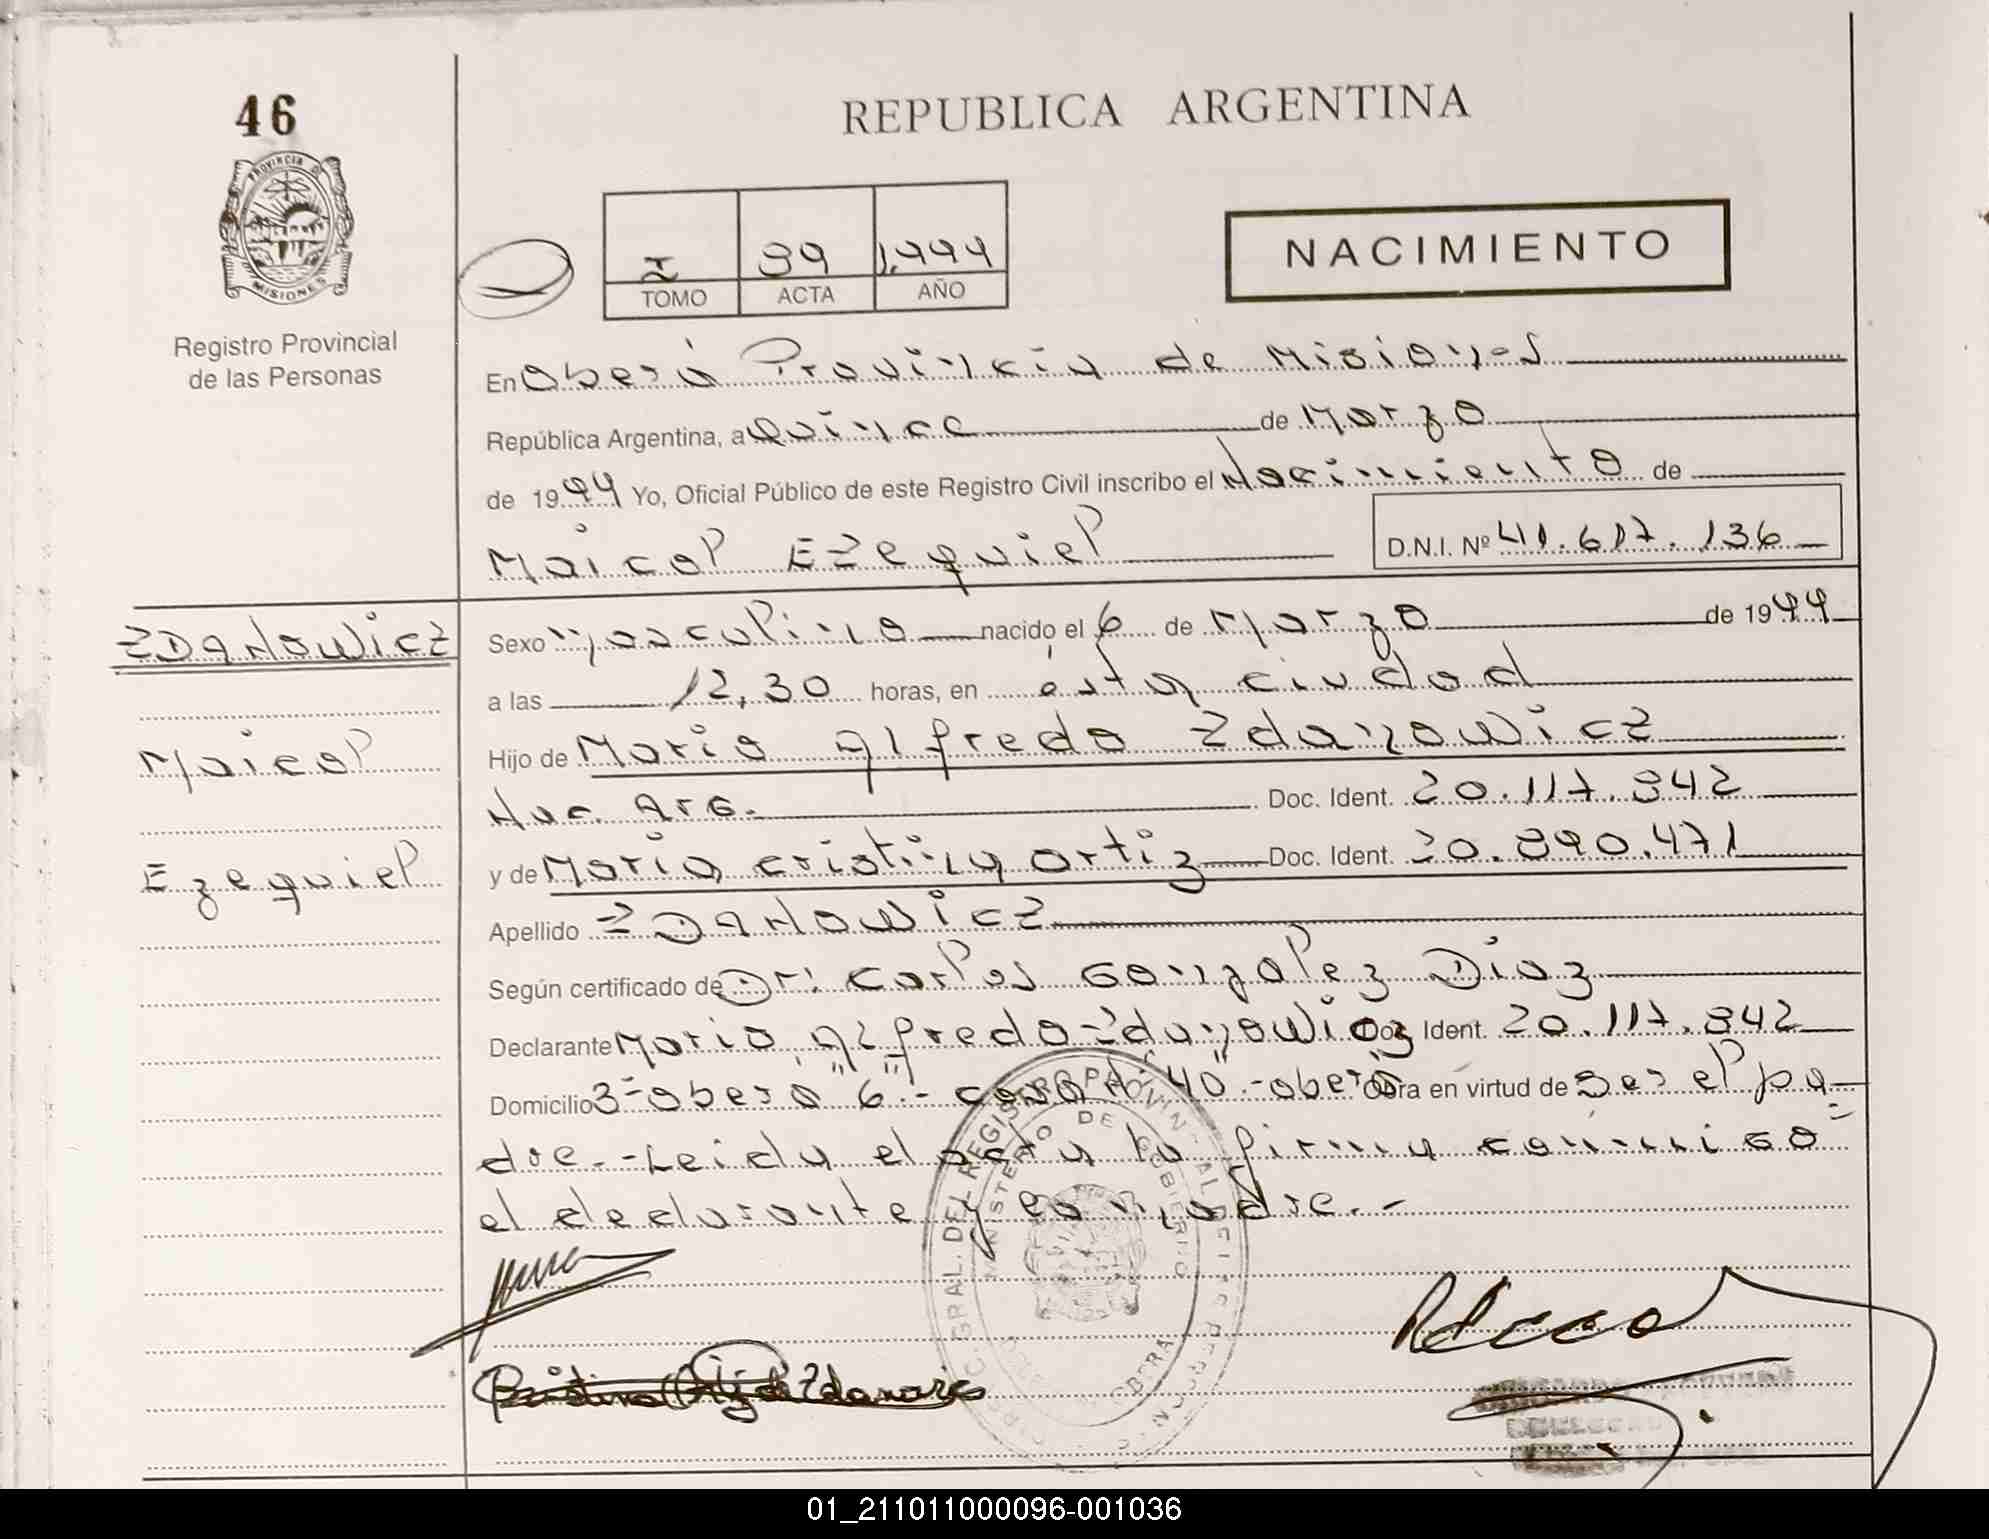 46
PROVINCIA D
MISIONES
Registro Provincial
de las Personas
REPUBLICA ARGENTINA
I 39 1.999
TOMO ACTA AÑO
NACIMIENTO
En Oberá Provincia de Misiones
República Argentina, a Quince de Marzo
de 1999 Yo, Oficial Público de este Registro Civil inscribo el Nacimiento de
Maicol Ezequiel D.N.I. Nº 41.617.136
ZDANOWicZ
Sexo masculino nacido el 6 de Marzo de 1999
a las 12,30 horas, en ésta ciudad
Maicol
Hijo de Mario Alfredo Zdanowicz
Nac. Arg. Doc. Ident. 20.117.342
Ezequiel
y de Maria Cristina Ortiz Doc. Ident. 20.890.471
Apellido ZDANOWicZ
Según certificado de Dr: Carlos Gonzalez Diaz
Declarante Mario Alfredo Zdanowicz Doc. Ident. 20.117.342
Domicilio 3-Oberá "6".- casa Nº "40".-oberá Obra en virtud de Ser el pa-
dre.-Leida el acta la firma conmigo
el declarante y la madre.-
Cristina Ortiz de Zdanowic
DIREC. GRAL. DEL REGISTRO PROVINCIAL DE LAS PERSONAS
MINISTERIO DE GOBIERNO
OBERA
01_211011000096-001036